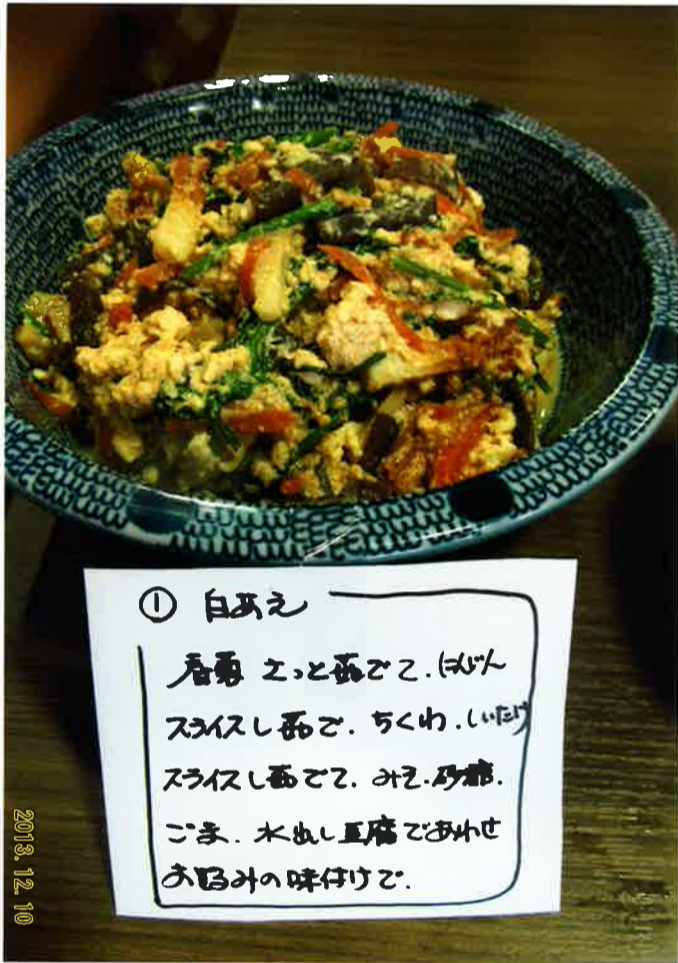 ① 白あえ
春菊 さっと茹でて.にんじん
スライスし茹で.ちくわ.しいたけ
スライスし茹でて.みそ.砂糖.
ごま.水出し豆腐であわせ
お好みの味付けで.
2013.12.10